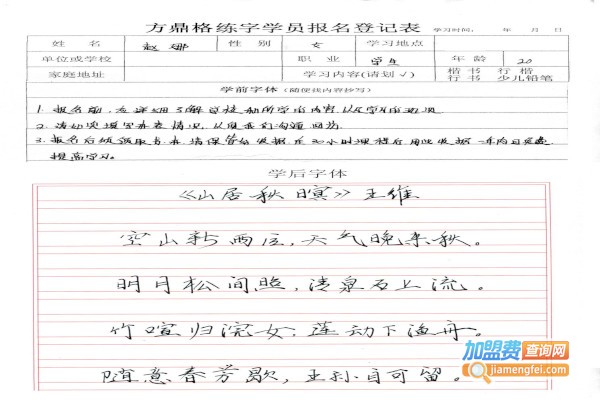 方鼎格练字学员报名登记表 学习时间: 年 月 日
姓名 赵娜 性别 女 学习地点
单位或学校 职业 学生 年龄 20
家庭地址 学习内容(请划√) 楷书 行楷 行书 少儿铅笔
学前字体 (随便找内容抄写)
1. 报名前,应详细了解学校和所学的内容,以及学习的
2. 请如实填写本表情况,以便我们沟通回访。
3. 报名后领取书本,请保管
提高学习。
学后字体
《山居秋暝》王维
空山新雨后,天气晚来秋。
明月松间照,清泉石上流。
竹喧归浣女,莲动下渔舟。
随意春芳歇,王孙自可留。
加盟费查询网
jiamengfei.com